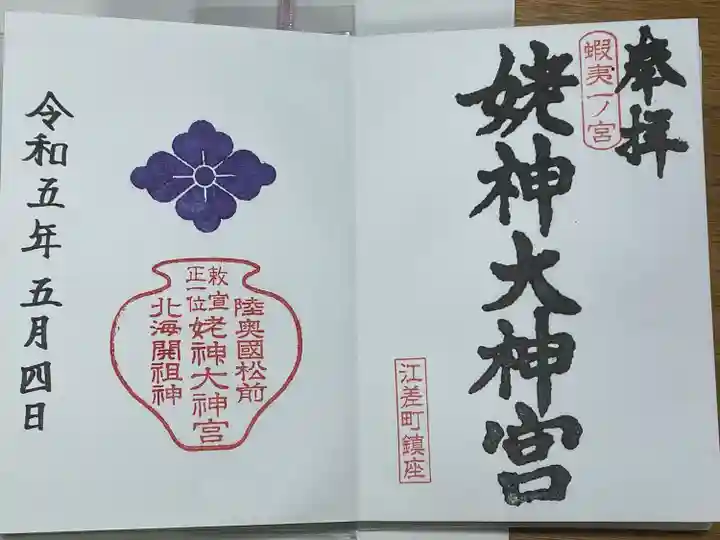 奉拝
蝦夷一ノ宮
姥神大神宮
江差町鎮座
陸奥國松前
敕宣
正一位
姥神大神宮
北海開祖神
令和五年五月四日